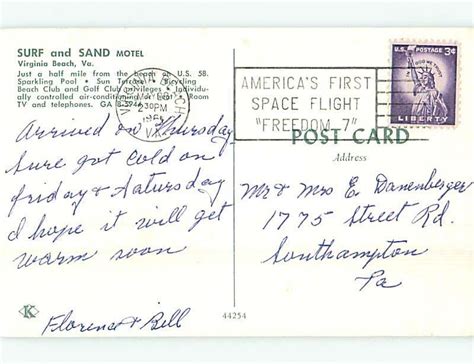 SURF and SAND MOTEL
Virginia Beach, Va.
Just a half mile from the beach on U.S. 58.
Sparkling Pool • Sun Terrace • Bicycling
Beach Club and Golf Club privileges • Individu-
ally controlled air-conditioning or heat • Room
TV and telephones. GA 8-3946
VIRGINIA BEACH
2 30 PM
VA.
AMERICA'S FIRST
SPACE FLIGHT
"FREEDOM 7"
U.S. POSTAGE 3¢
IN GOD WE TRUST
LIBERTY
POST CARD
Address
Arrived on Thursday
Sure got cold on
friday & Saturday
I hope it will get
warm soon
Florence & Bill
Mr & Mrs E. Danenberger
1775 Street Rd.
Southampton
Pa
K
44254